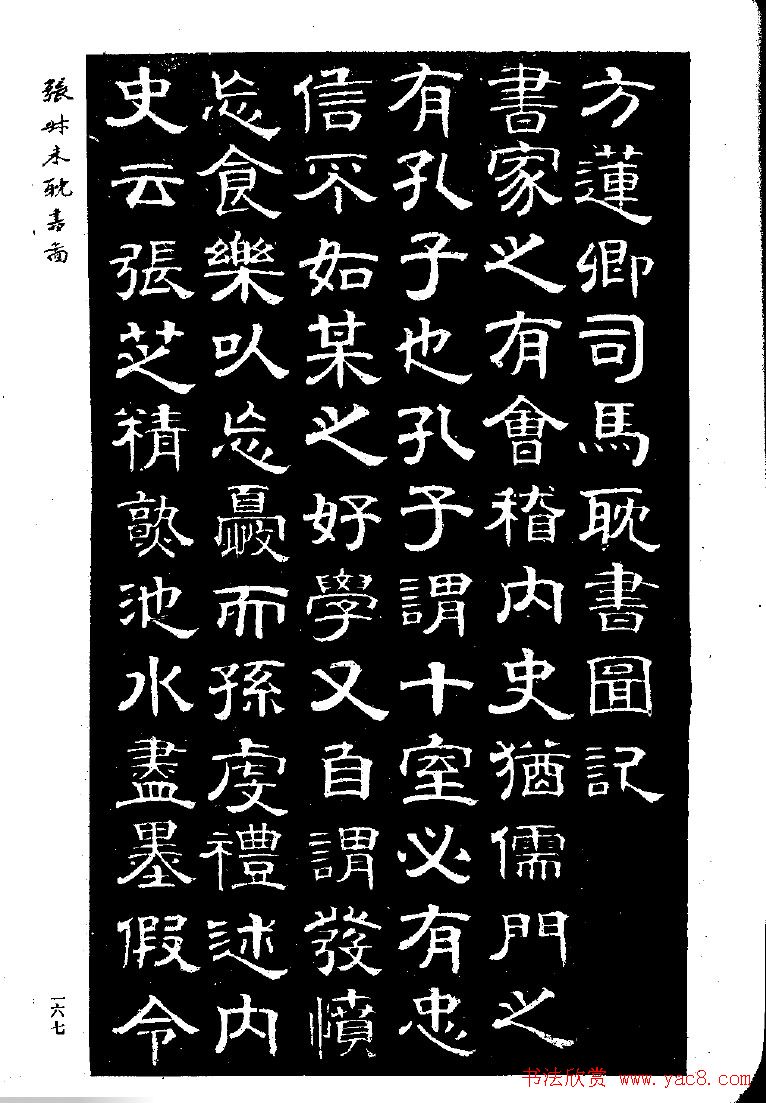 方蓮卿司馬耽書圖記
書家之有會稽内史猶儒門之
有孔子也孔子謂十室必有忠
信不如某之好學又自謂發憤
忘食樂以忘憂而孫虔禮述内
史云張芝精熟池水盡墨假令
張叔未耽書圖
一六七
书法欣赏 www.yac8.com